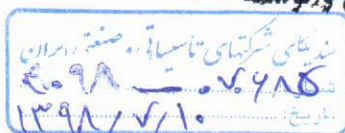 سندیکای شرکتهای تاسیساتی و صنعتی ایران
شماره: ۴۰۹۸ — ۰۷۶۸۵
تاریخ: ۱۳۹۸/۷/۱۰